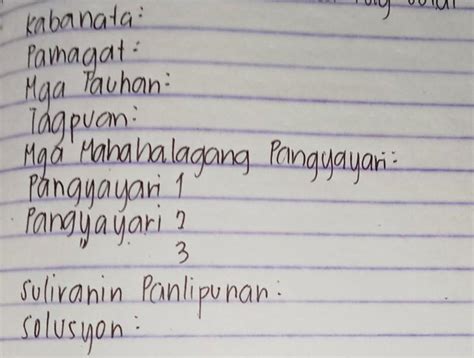 Kabanata:
Pamagat:
Mga Tauhan:
Tagpuan:
Mga Mahahalagang Pangyayari:
Pangyayari 1
Pangyayari 2
3
Suliranin Panlipunan:
Solusyon: